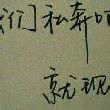 们]私奔吧
就现